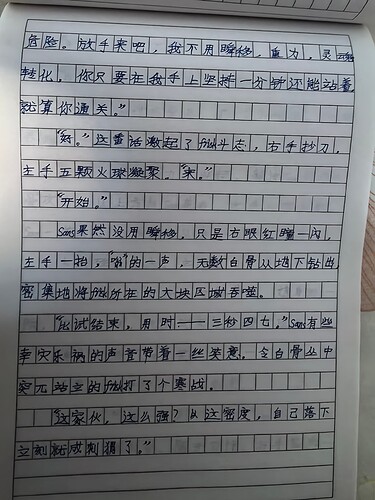 危险。放手来吧，我不用瞬移，重力，灵魂
转化。你只要在我手上坚持一分钟还能站着，
就算你通关。”
“好。”这番话激起了fgk斗志，右手抄刀，
左手五颗火球凝聚。“来。”
“开始。”
Sans果然没用瞬移，只是右眼红瞳一闪，
左手一抬，“嗡”的一声，无数白骨从地下钻出，
密集地将 所在的大块区域吞噬。
“比试结束，用时——三秒四七。”Sans有些
幸灾乐祸的声音带着一丝笑意，令白骨丛中
突兀站立的 打了个寒战。
“这家伙，这么强？以这密度，自己落下
立刻就成刺猬了。”